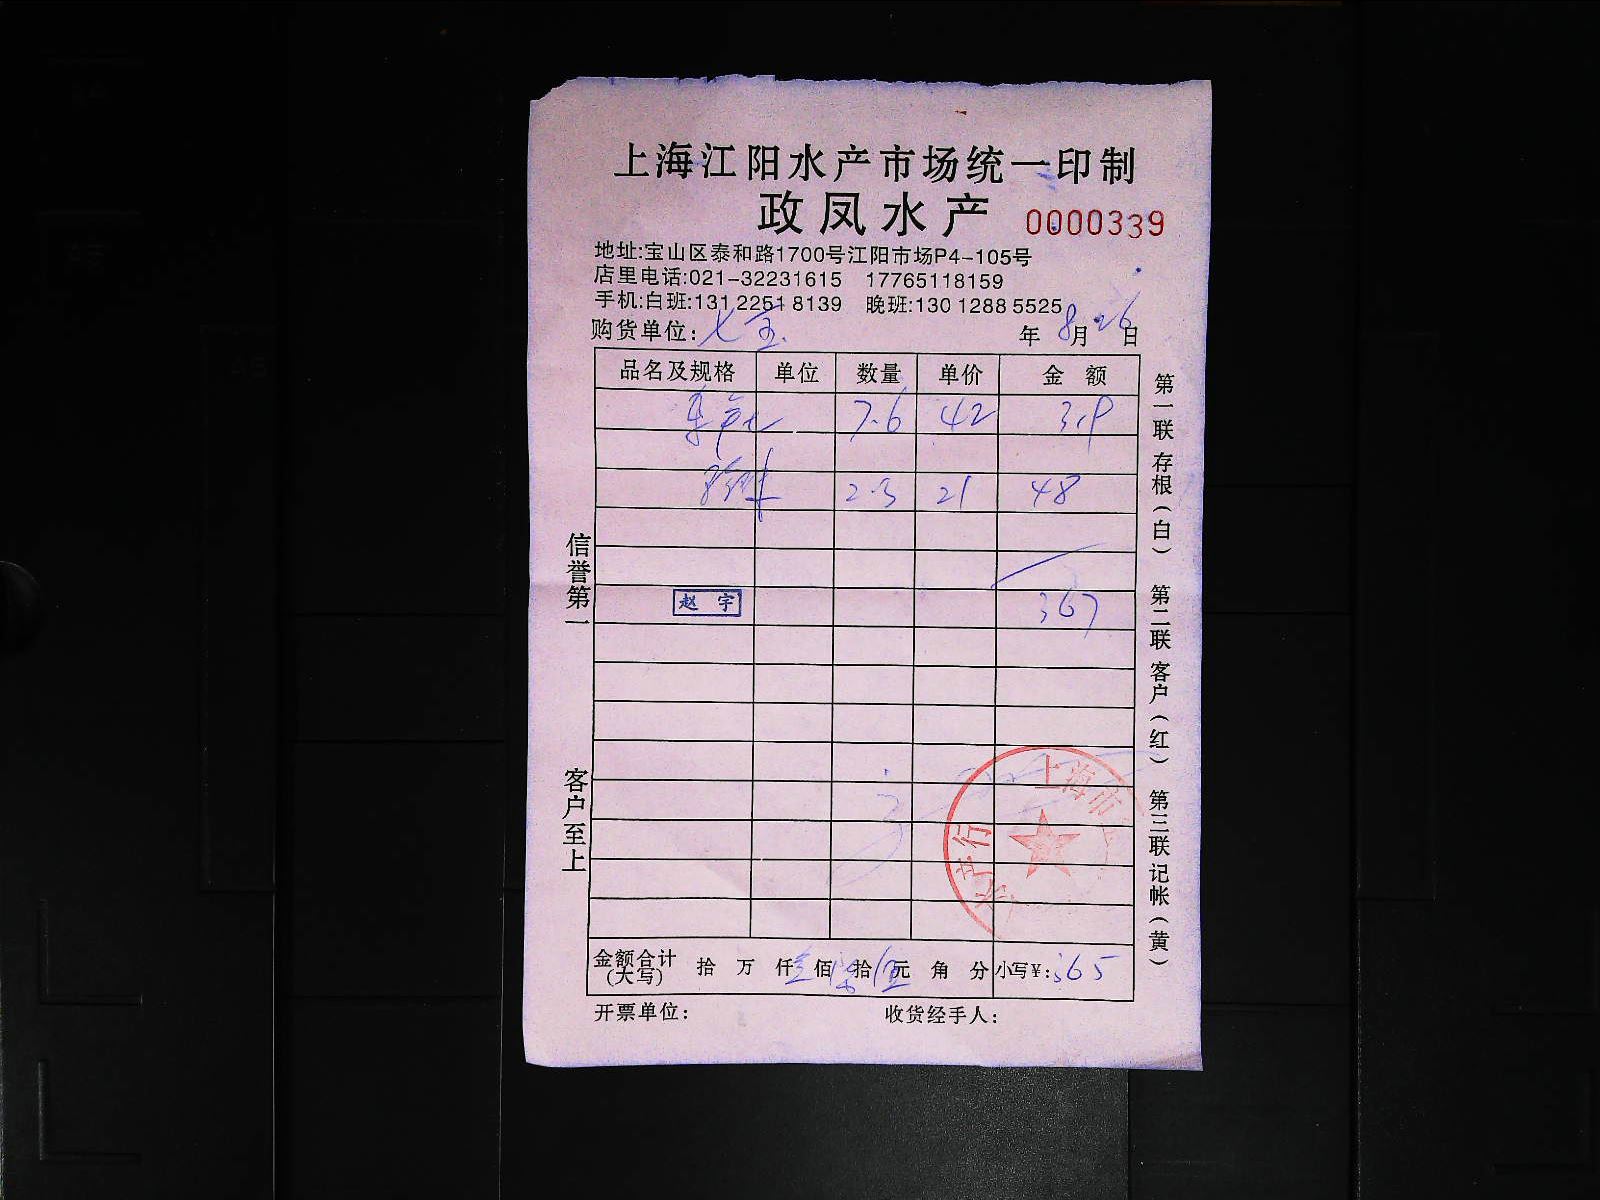 上海江阳水产市场统一印制
政凤水产 0000339
地址:宝山区泰和路1700号江阳市场P4-105号
店里电话:021-32231615 17765118159
手机:白班:131 2251 8139 晚班:130 1288 5525
购货单位: 七宝 年 8月26日
品名及规格 单位 数量 单价 金 额
7.6 42 319
2.3 21 48
赵 宇 367
信誉第一
客户至上
第一联 存根(白) 第二联 客户(红) 第三联 记帐(黄)
上海市 水产行
金额合计(大写) 拾 万 仟 叁佰 陆拾 伍元 角 分 小写¥:365
开票单位: 收货经手人: